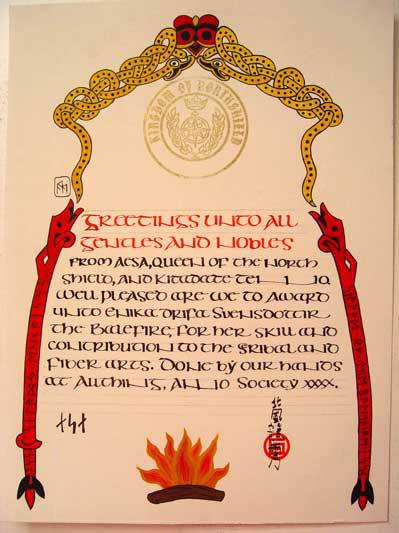 KINGDOM OF NORTHSHIELD
Greetings unto all
gentles and nobles
from Aesa, Queen of the North
Shield, and Kitadate
well pleased are we to award
unto Enika Drifa Svensdottir
the Balefire, for her skill and
contribution to the and
Fiber arts. Done by our hands
at Allthing, Society XXXX.
北風